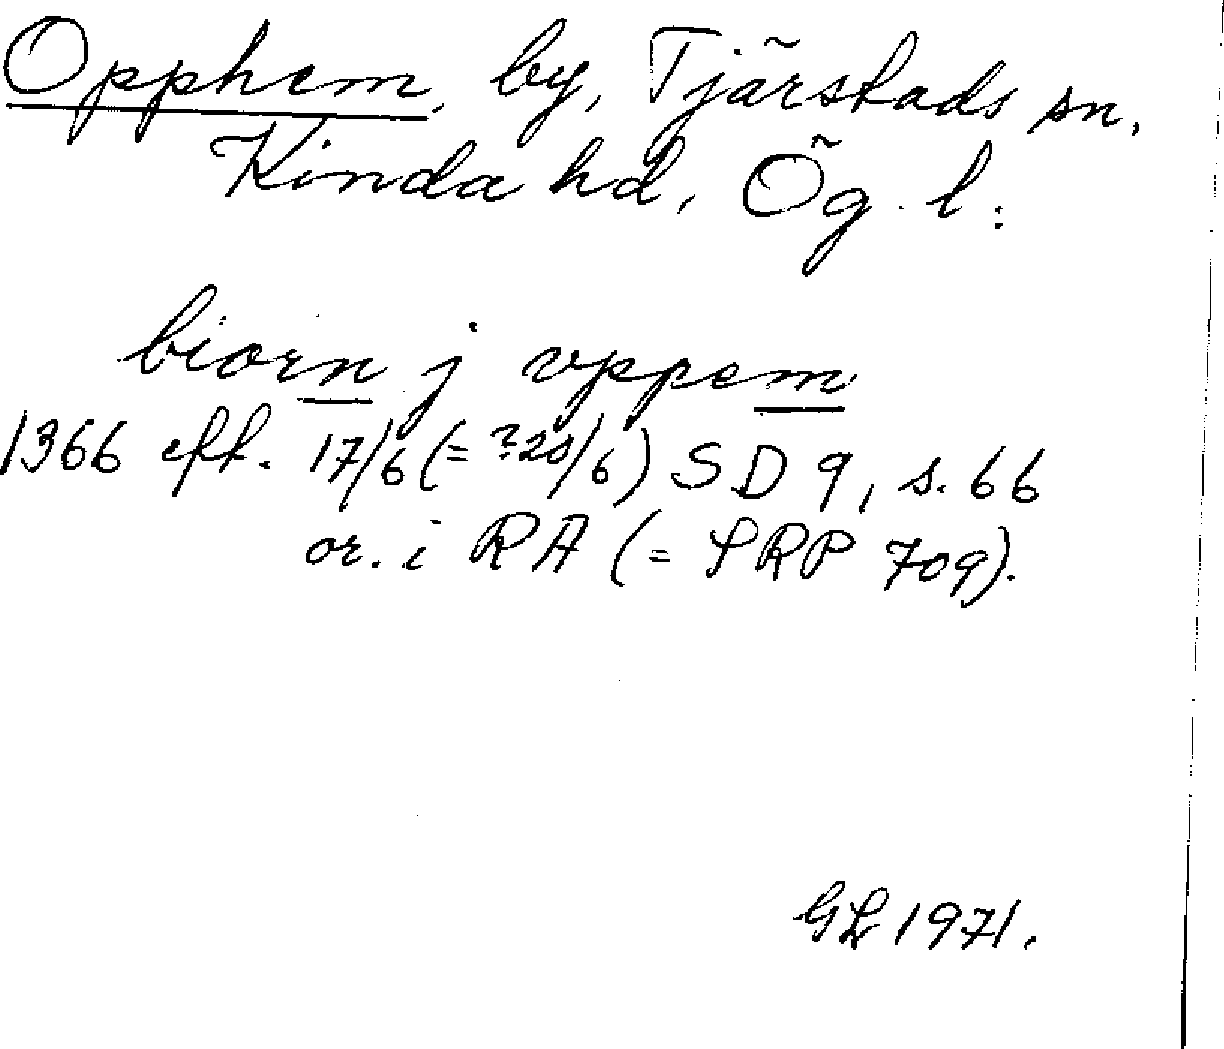 Opphem, by, Tjärstads sn,
Kinda hd, Ög. l:
biorn j vppem
1366 eft. 17/6 (= ?20/6) SD 9, s. 66
or. i RA (= SRP 709).
GL 1971.